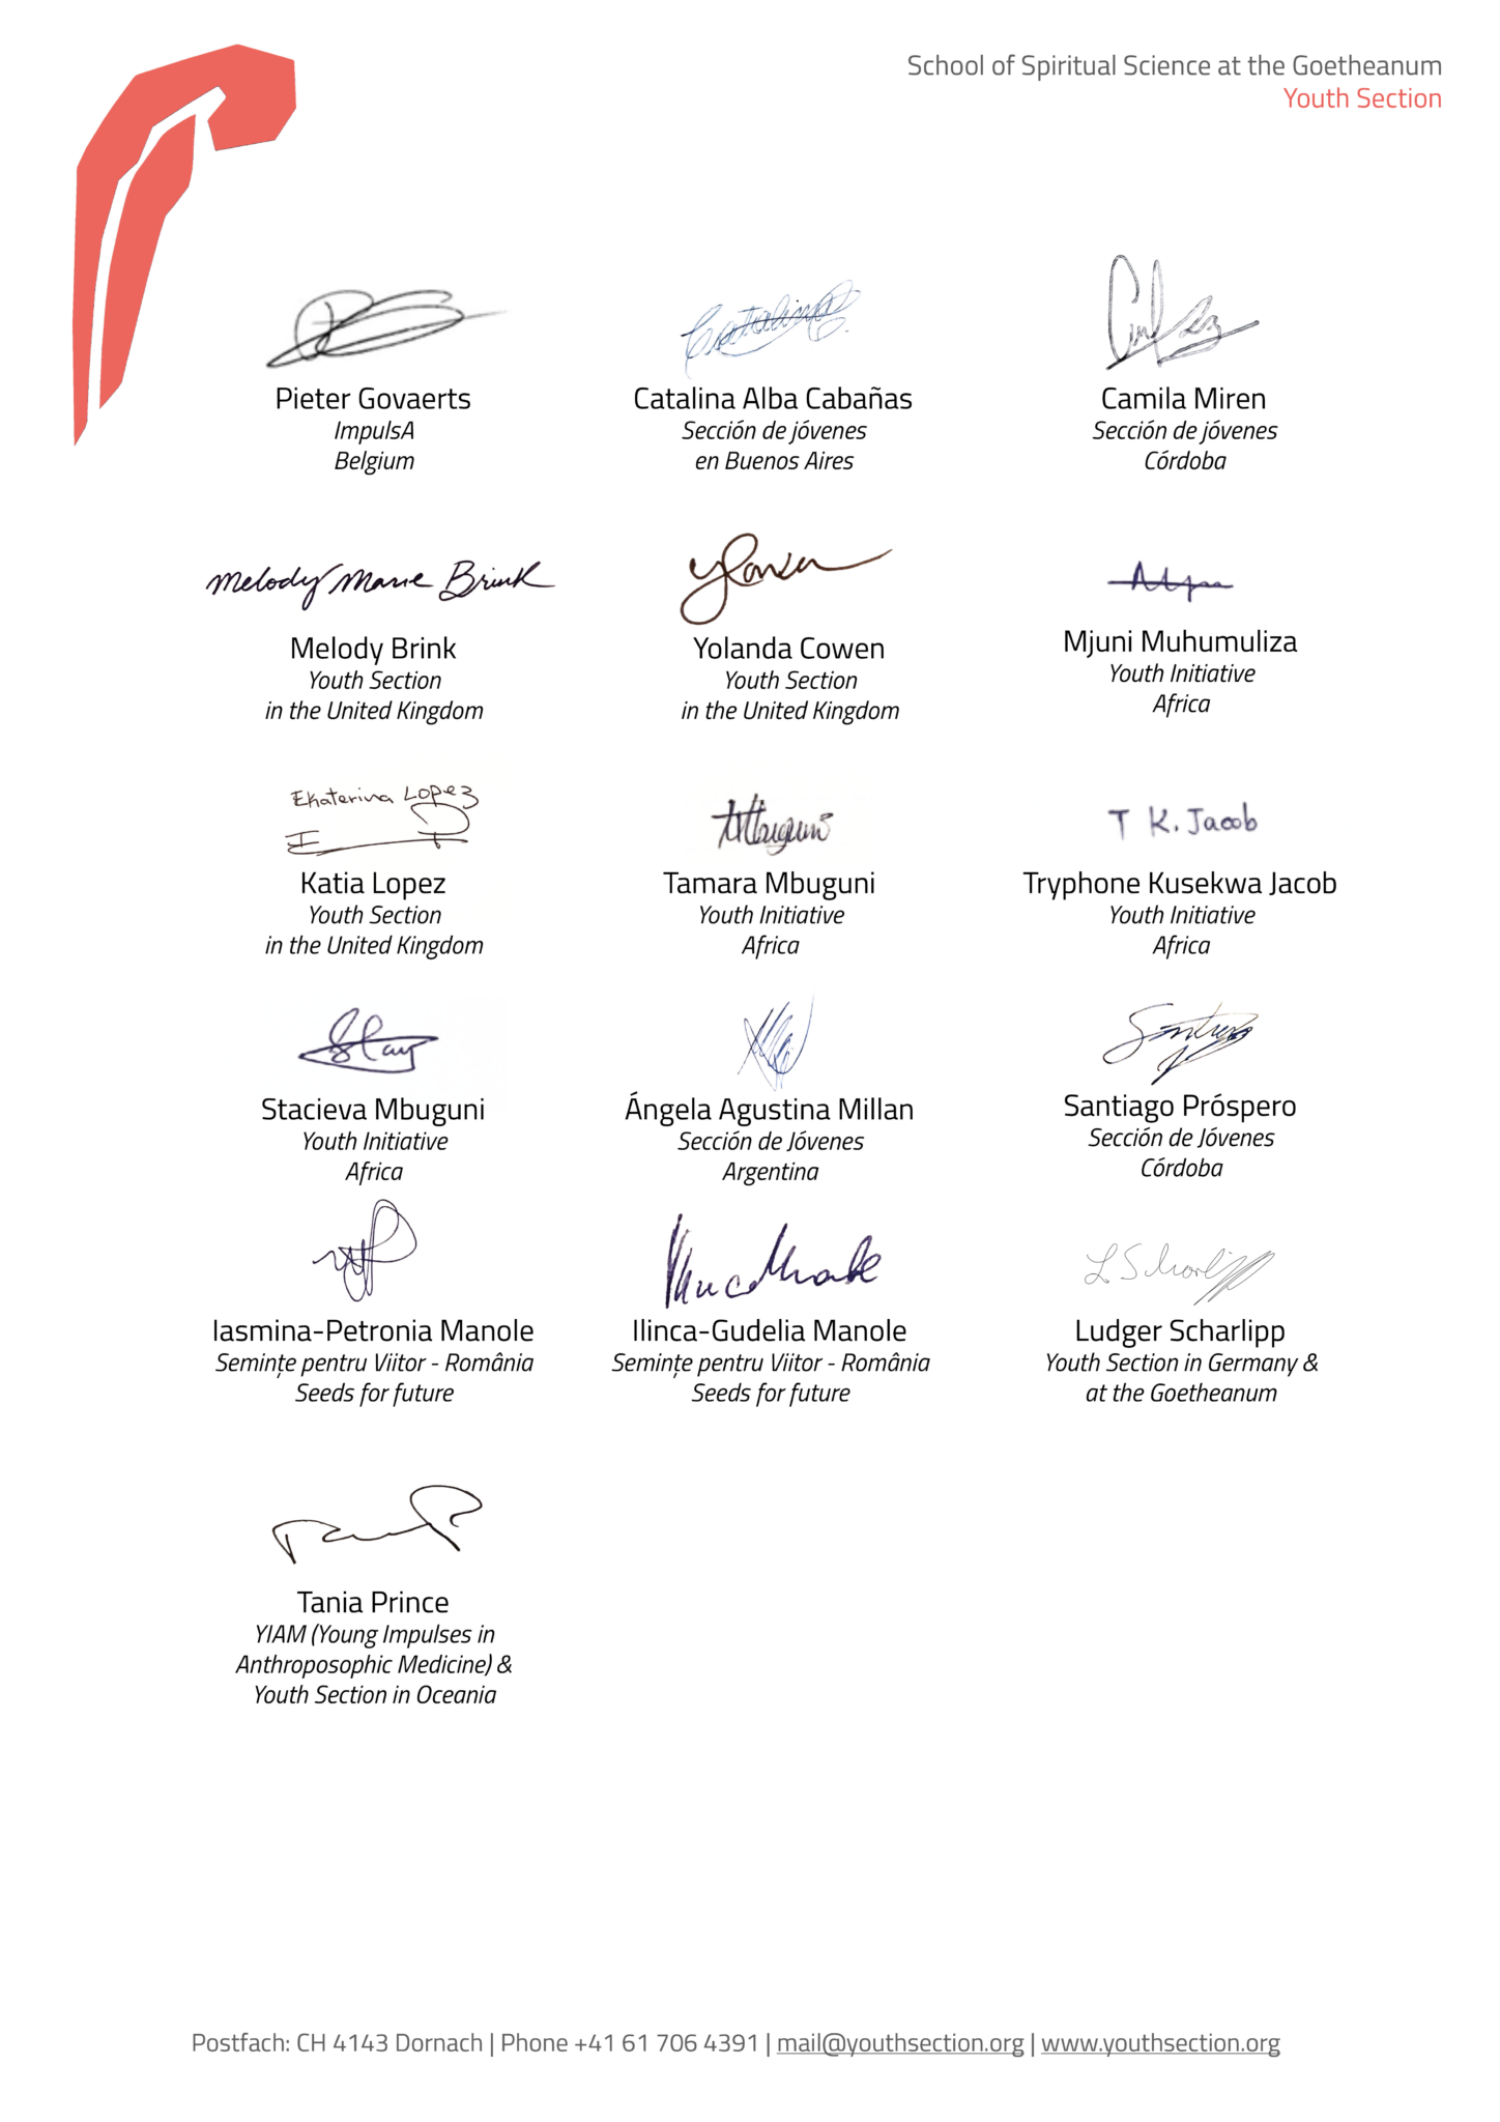 School of Spiritual Science at the Goetheanum
Youth Section
Pieter Govaerts
ImpulsA
Belgium
Catalina Alba Cabañas
Sección de jóvenes
en Buenos Aires
Camila Miren
Sección de jóvenes
Córdoba
Melody Marie Brink
Melody Brink
Youth Section
in the United Kingdom
Yolanda Cowen
Youth Section
in the United Kingdom
Mjuni Muhumuliza
Youth Initiative
Africa
Ekaterina Lopez
Katia Lopez
Youth Section
in the United Kingdom
Tamara Mbuguni
Youth Initiative
Africa
T K. Jacob
Tryphone Kusekwa Jacob
Youth Initiative
Africa
Stacieva Mbuguni
Youth Initiative
Africa
Ángela Agustina Millan
Sección de Jóvenes
Argentina
Santiago Próspero
Sección de Jóvenes
Córdoba
Iasmina-Petronia Manole
Semințe pentru Viitor - România
Seeds for future
Ilinca-Gudelia Manole
Semințe pentru Viitor - România
Seeds for future
L Scharlipp
Ludger Scharlipp
Youth Section in Germany &
at the Goetheanum
Tania Prince
YIAM (Young Impulses in
Anthroposophic Medicine) &
Youth Section in Oceania
Postfach: CH 4143 Dornach | Phone +41 61 706 4391 | mail@youthsection.org | www.youthsection.org